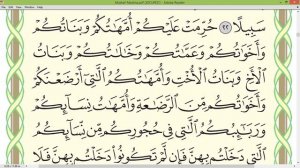 Mushaf Madina.pdf (SECURED) - Adobe Reader
سَبِيلًا ٢٢ حُرِّمَتْ عَلَيْكُمْ أُمَّهَٰتُكُمْ وَبَنَاتُكُمْ
وَأَخَوَٰتُكُمْ وَعَمَّٰتُكُمْ وَخَٰلَٰتُكُمْ وَبَنَاتُ
ٱلْأَخِ وَبَنَاتُ ٱلْأُخْتِ وَأُمَّهَٰتُكُمُ ٱلَّٰتِىٓ أَرْضَعْنَكُمْ
وَأَخَوَٰتُكُم مِّنَ ٱلرَّضَٰعَةِ وَأُمَّهَٰتُ نِسَآئِكُمْ
وَرَبَٰٓئِبُكُمُ ٱلَّٰتِى فِى حُجُورِكُم مِّن نِّسَآئِكُمُ
ٱلَّٰتِى دَخَلْتُم بِهِنَّ فَإِن لَّمْ تَكُونُوا۟ دَخَلْتُم بِهِنَّ فَلَا